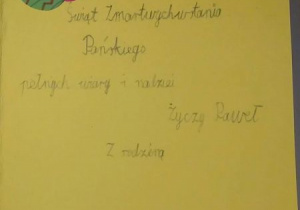 Świąt Zmartwychwstania
Pańskiego
pełnych wiary i nadziei
Życzy Paweł
Z rodziną